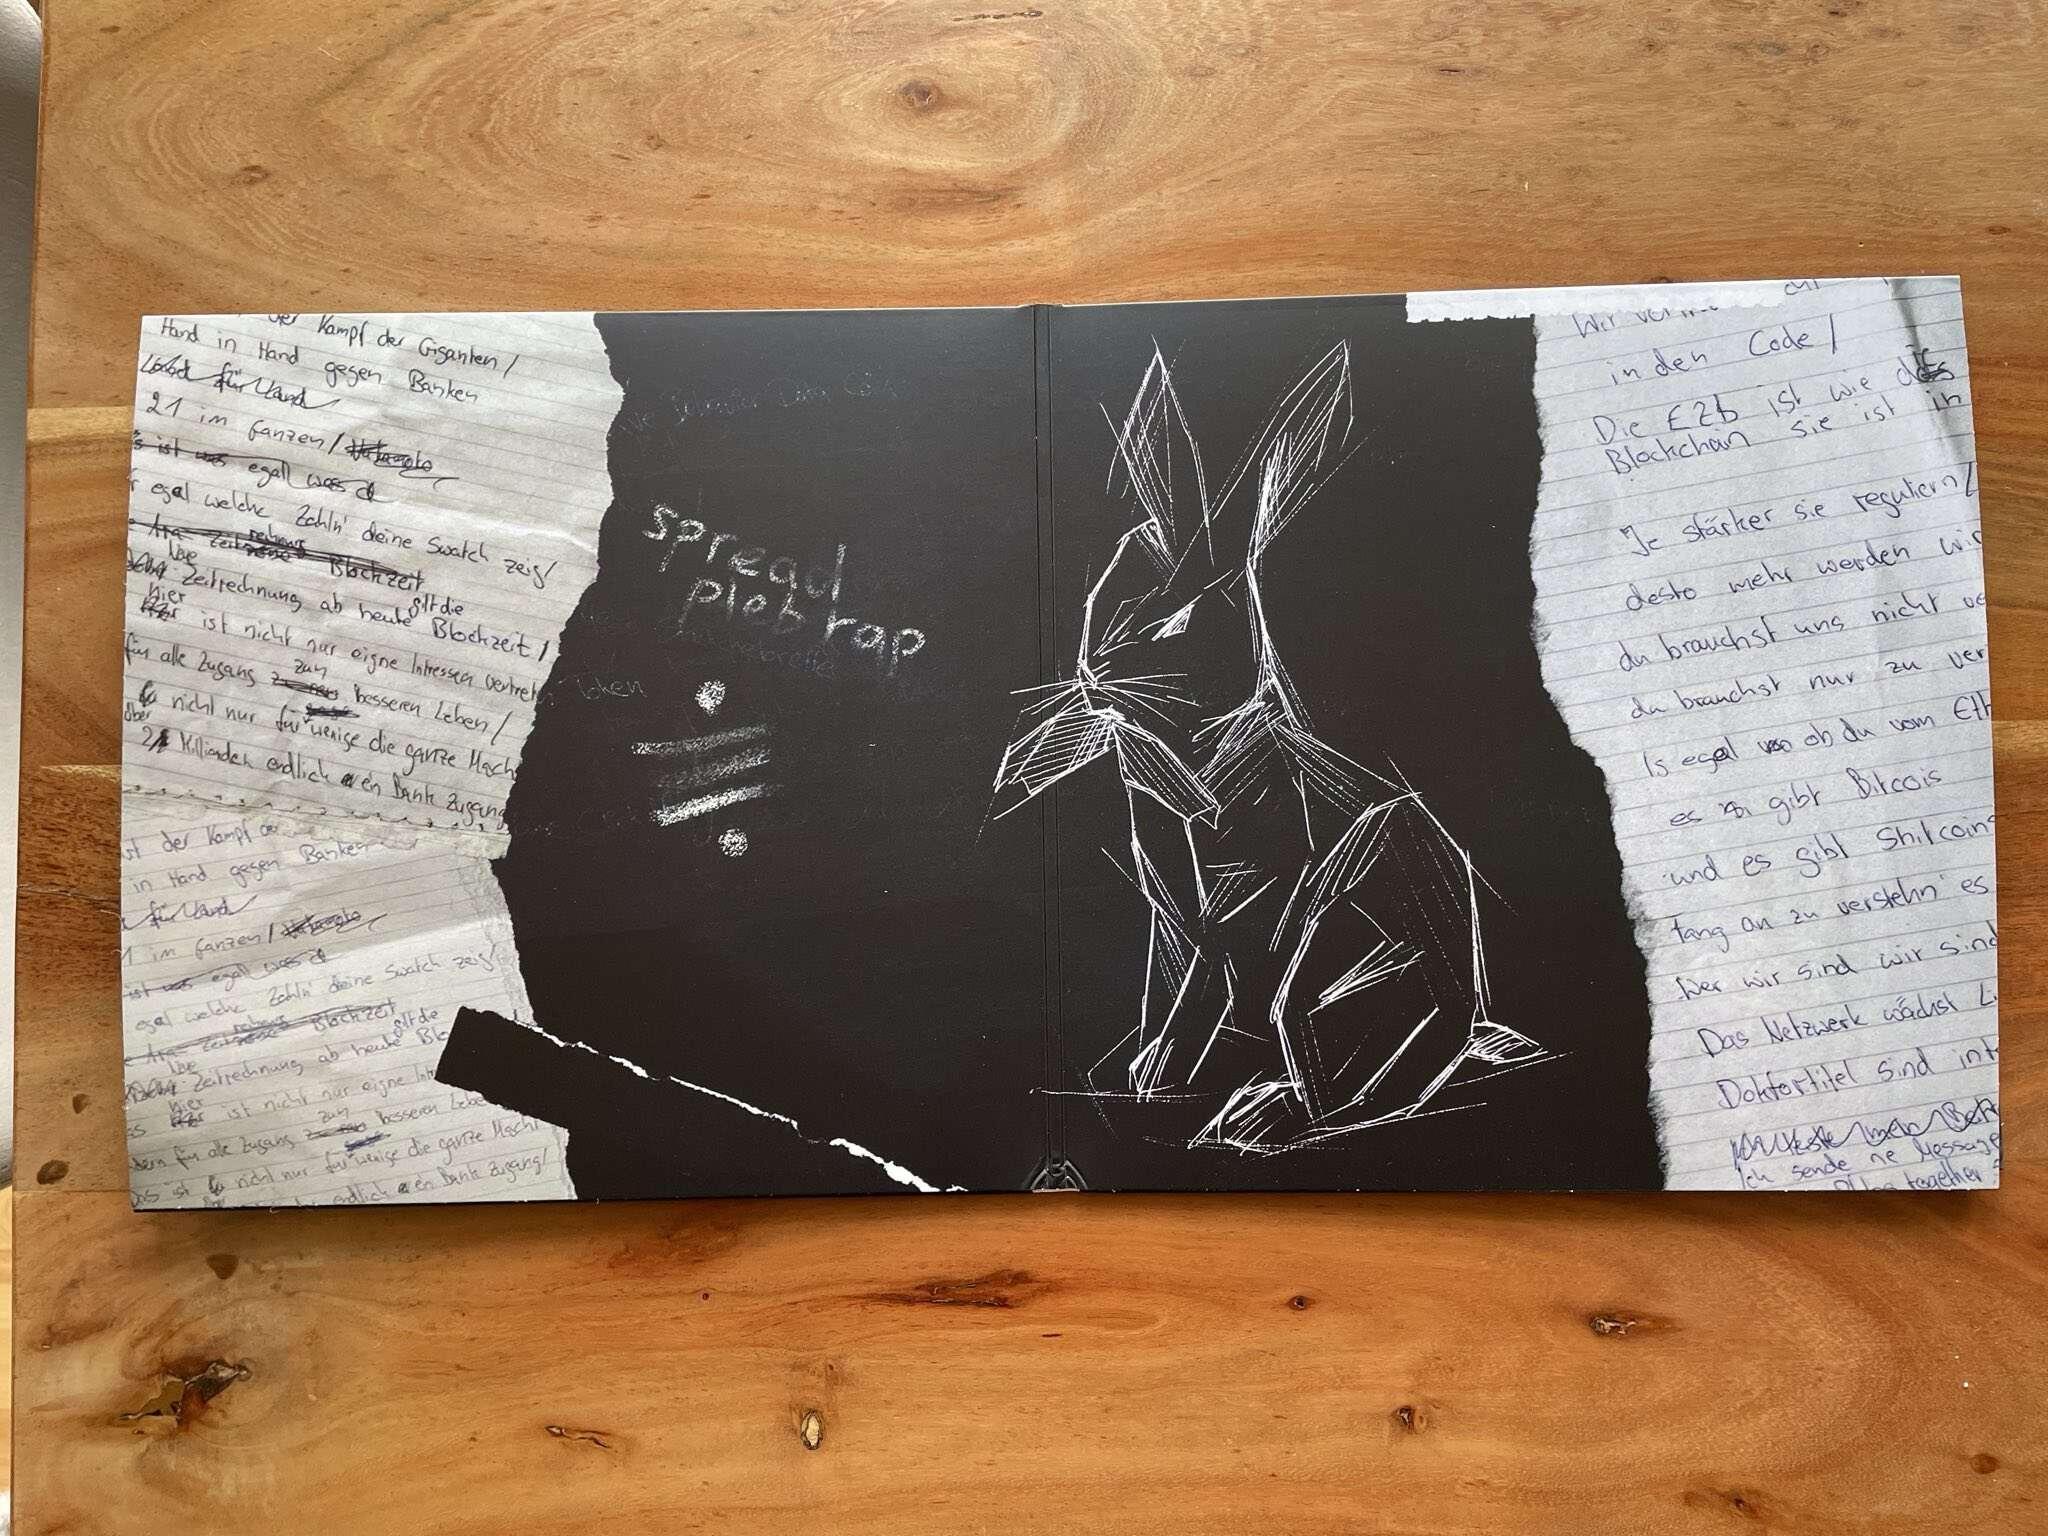 der Kampf der Giganten/
Hand in Hand gegen Banken
für Hand
21 im Ganzen/
is ist was egal was d
r egal welche Zahln' deine Swatch zeig/
Ära Zeit reihens Blockzeit
Neue Zeitrechnung ab heute gilt die Blockzeit/
hier ist nicht nur eigne Intressen vertreten
für alle Zugang zum besseren Leben/
nicht nur für wenige die ganze Mach
über 2 Milliarden endlich en Bank Zugang
spread
plebrap
st der Kampf de
in Hand gegen Banken
für Hand
1 im Ganzen/
ist was egal was d
egal welche Zahln' deine Swatch zeig/
Ära Zeit reihens Blockzeit
Neue Zeitrechnung ab heute gilt die Blo
hier
ss ist nicht nur eigne Intre
dern für alle Zugang zum besseren Lebe
Das ist nicht nur für wenige die ganze Macht
endlich en Bank Zugang/
Wir
in den Code/
Die EZB ist wie die
Blockchain sie ist in
Je stärker sie reguliern/
desto mehr werden wir
du brauchst uns nicht ve
du brauchst nur zu ver
Is egal wo ob du vom Eth
es gibt Bitcois
und es gibt Shitcoins
fang an zu verstehn' es
Wer wir sind wir sind
Das Netzwerk wächst Li
Doktortitel sind int
Ich sende ne Message
together